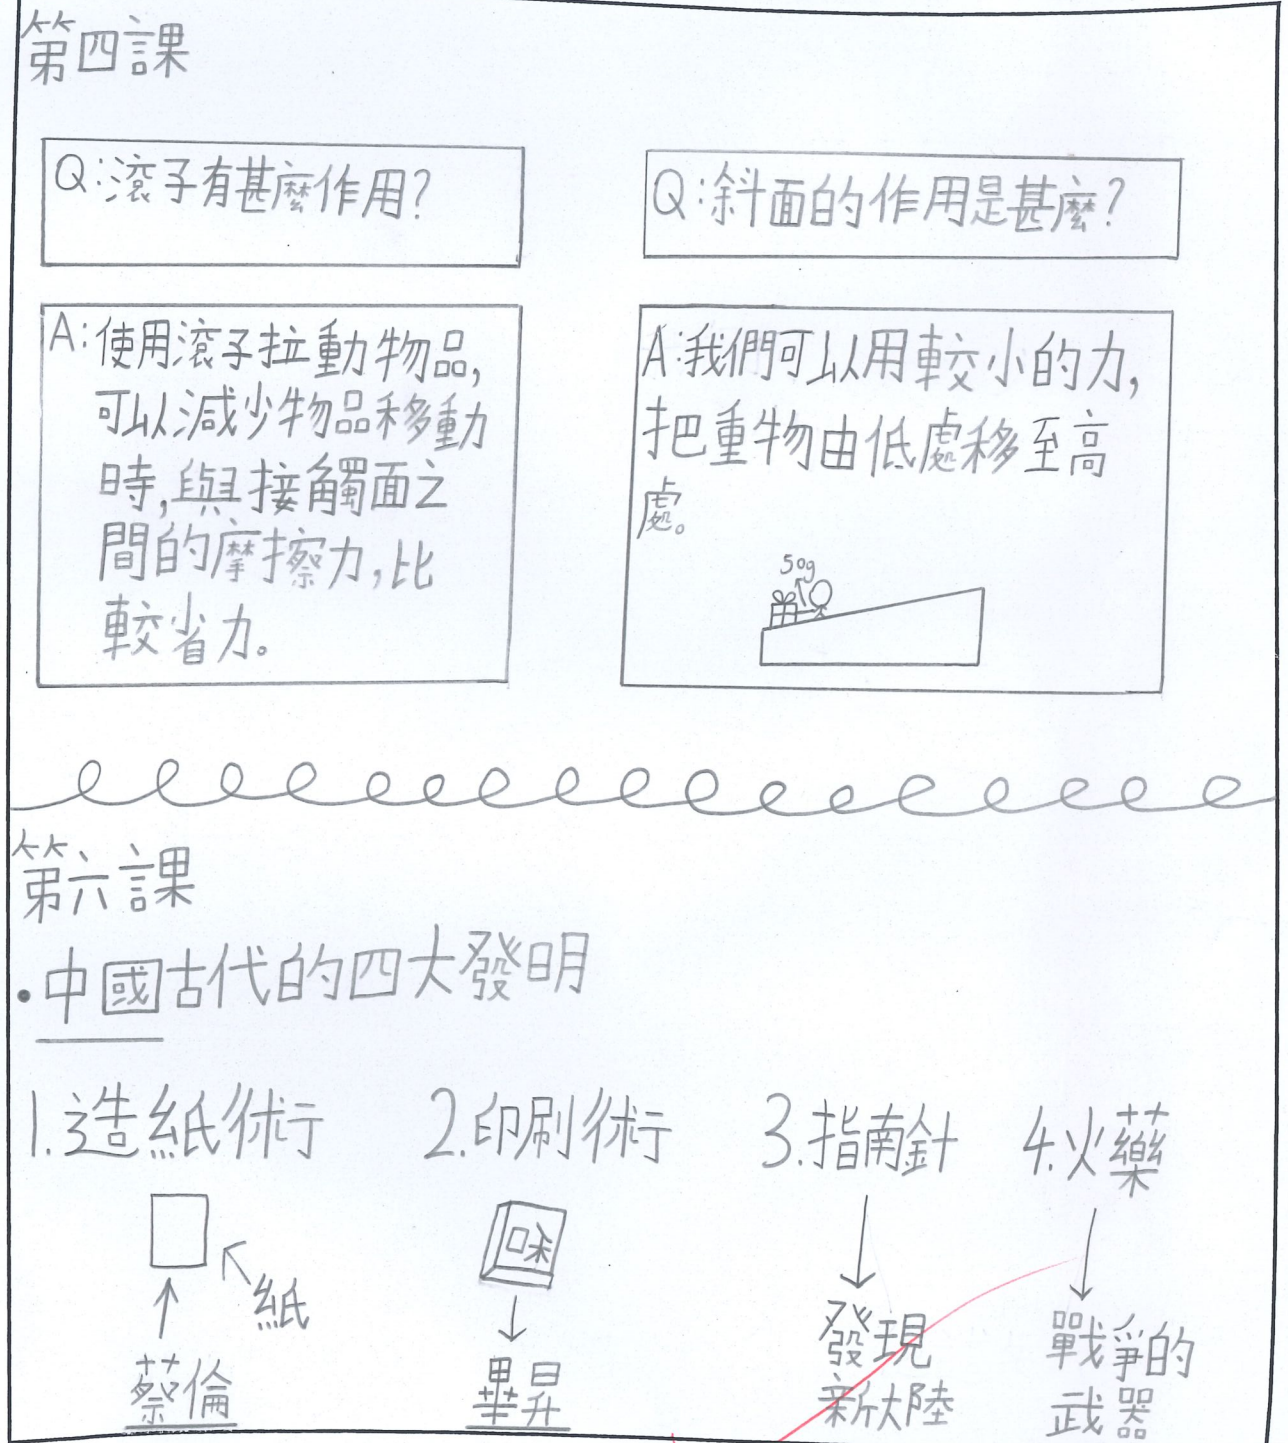 第四課
Q:滾子有甚麼作用?
A:使用滾子拉動物品,
可以減少物品移動
時,與接觸面之
間的摩擦力,比
較省力。
Q:斜面的作用是甚麼?
A:我們可以用較小的力,
把重物由低處移至高
處。
50g
第六課
·中國古代的四大發明
1.造紙術
紙
蔡倫
2.印刷術
畢昇
3.指南針
發現
新大陸
4.火藥
戰爭的
武器